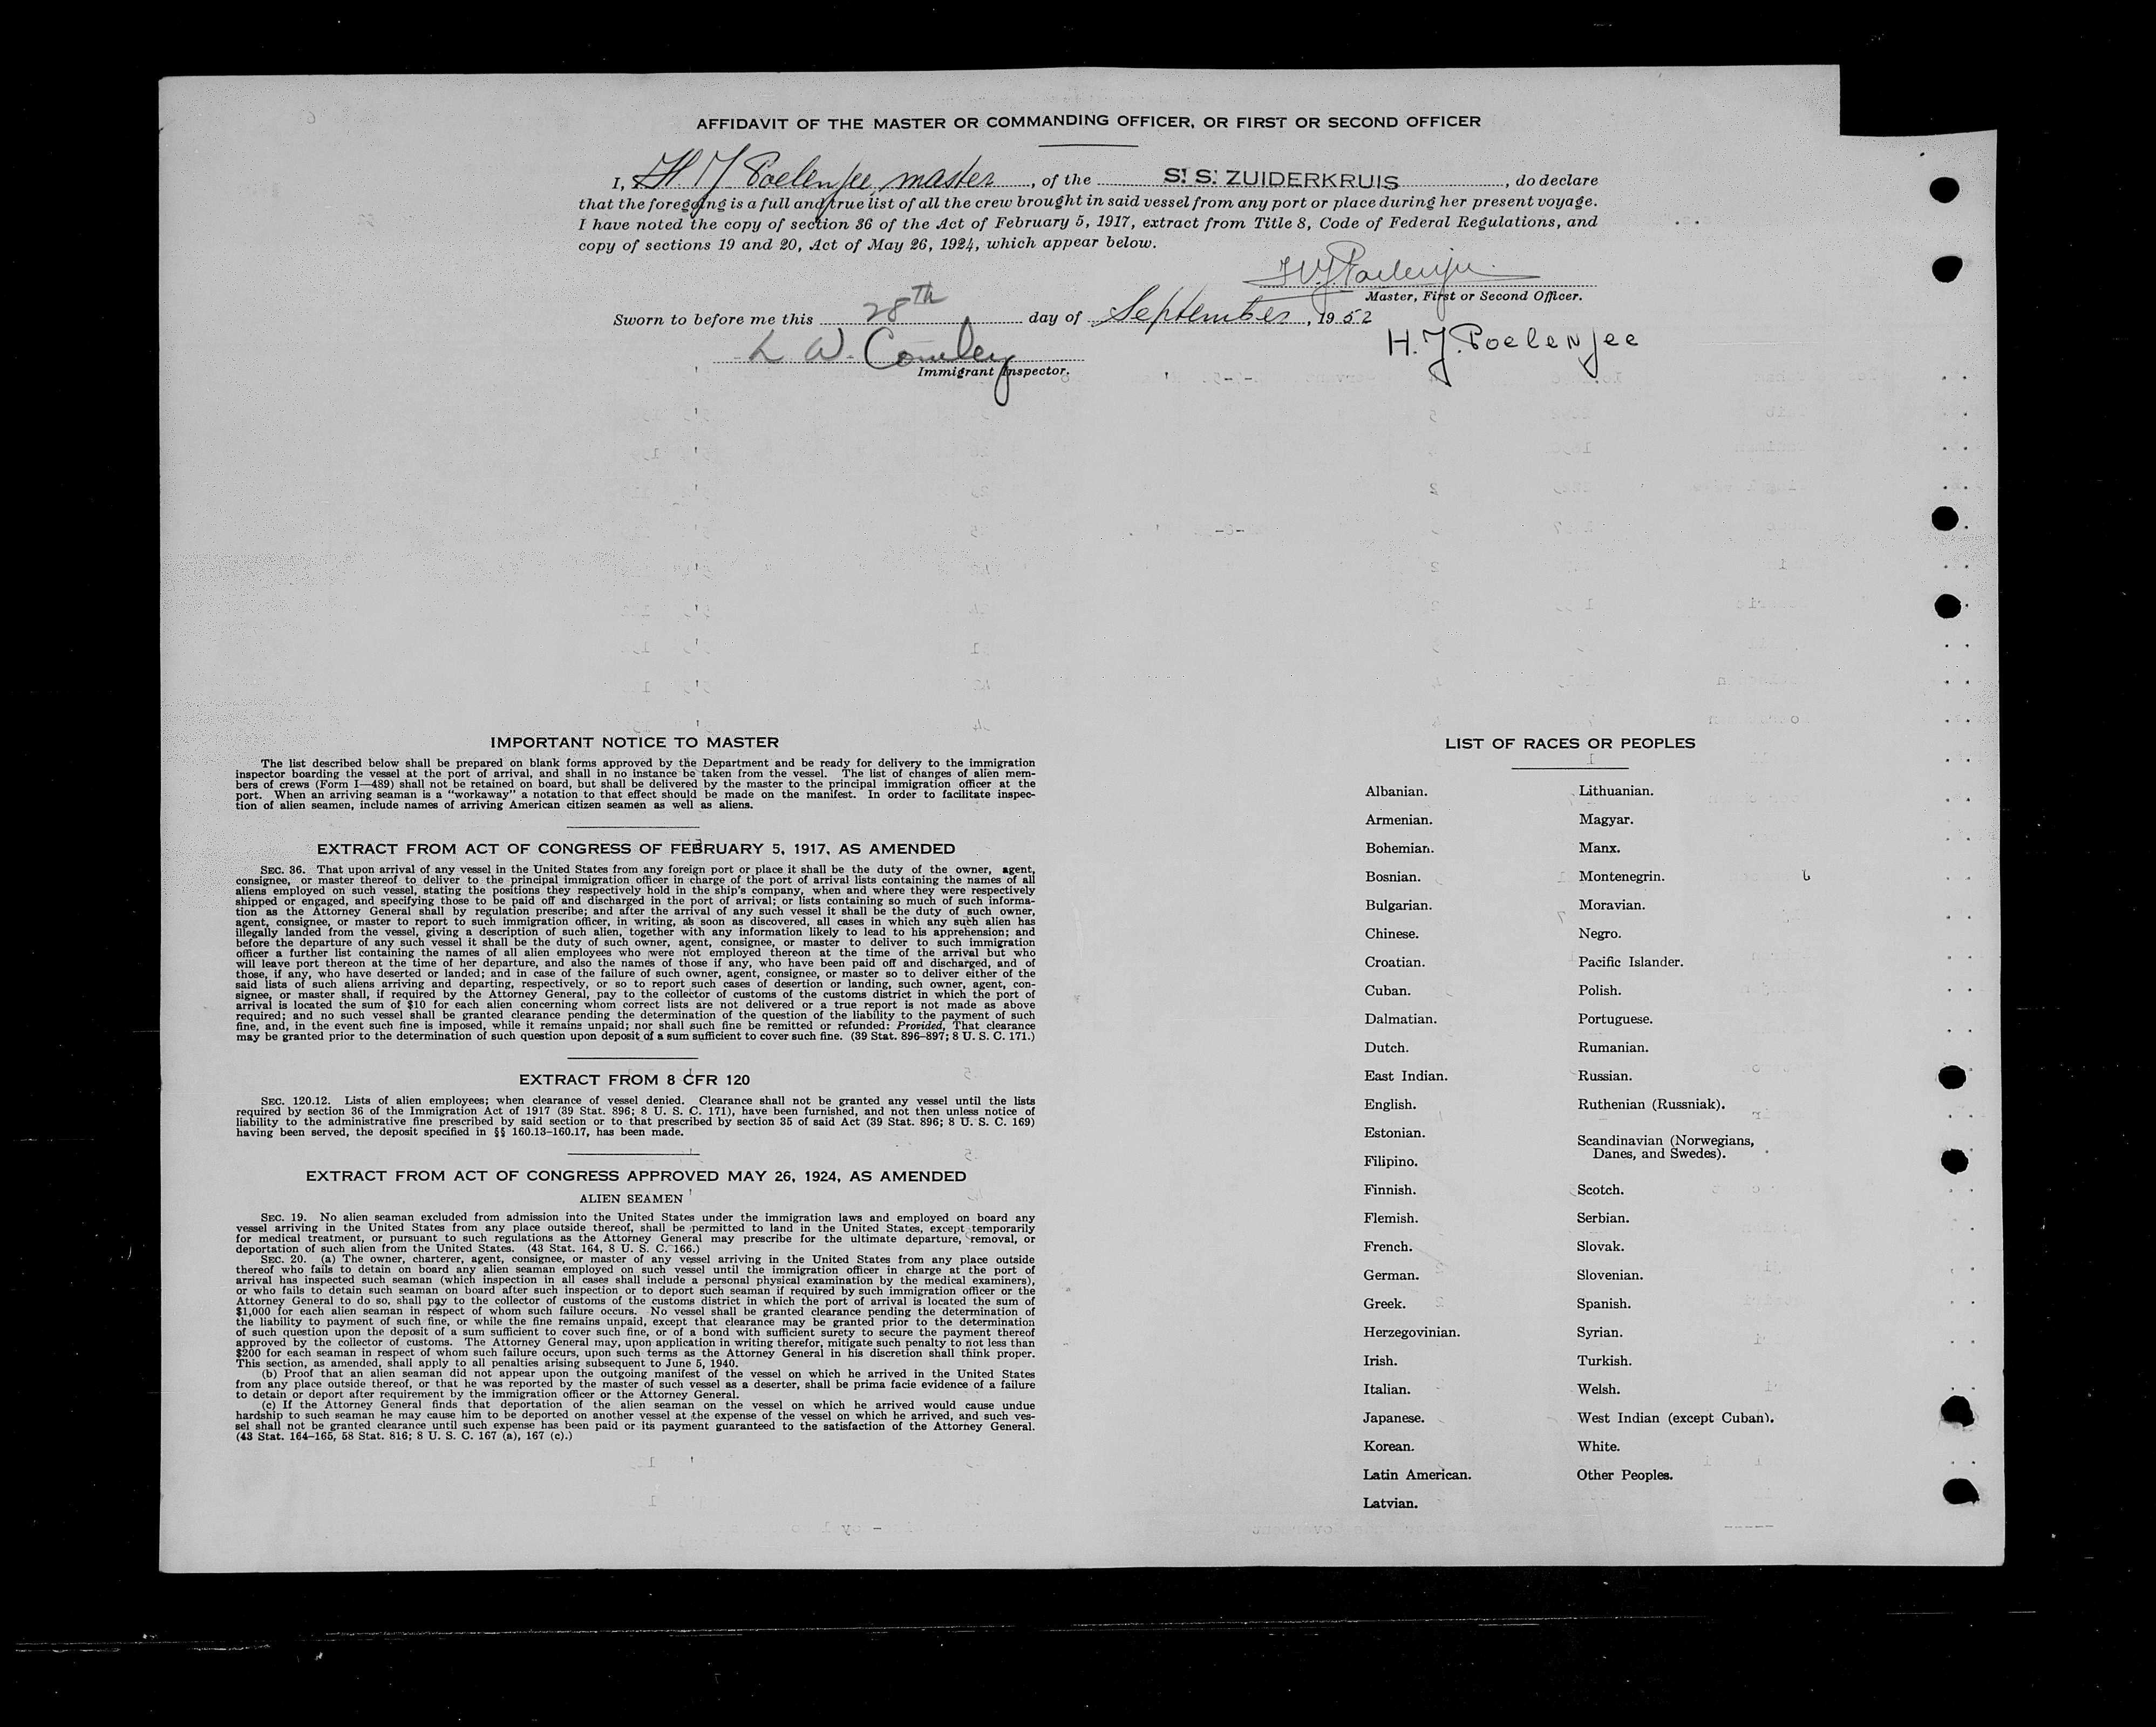 AFFIDAVIT OF THE MASTER OR COMMANDING OFFICER, OR FIRST OR SECOND OFFICER
I, H. J. Poelenjee, master, of the S. S. ZUIDERKRUIS, do declare
that the foregoing is a full and true list of all the crew brought in said vessel from any port or place during her present voyage.
I have noted the copy of section 36 of the Act of February 5, 1917, extract from Title 8, Code of Federal Regulations, and
copy of sections 19 and 20, Act of May 26, 1924, which appear below.
Master, First or Second Officer.
Sworn to before me this 28th day of September, 1952
H. J. Poelenjee
L W. Comley
Immigrant Inspector.
IMPORTANT NOTICE TO MASTER
The list described below shall be prepared on blank forms approved by the Department and be ready for delivery to the immigration
inspector boarding the vessel at the port of arrival, and shall in no instance be taken from the vessel. The list of changes of alien mem-
bers of crews (Form I—489) shall not be retained on board, but shall be delivered by the master to the principal immigration officer at the
port. When an arriving seaman is a "workaway" a notation to that effect should be made on the manifest. In order to facilitate inspec-
tion of alien seamen, include names of arriving American citizen seamen as well as aliens.
EXTRACT FROM ACT OF CONGRESS OF FEBRUARY 5, 1917, AS AMENDED
SEC. 36. That upon arrival of any vessel in the United States from any foreign port or place it shall be the duty of the owner, agent,
consignee, or master thereof to deliver to the principal immigration officer in charge of the port of arrival lists containing the names of all
aliens employed on such vessel, stating the positions they respectively hold in the ship's company, when and where they were respectively
shipped or engaged, and specifying those to be paid off and discharged in the port of arrival; or lists containing so much of such informa-
tion as the Attorney General shall by regulation prescribe; and after the arrival of any such vessel it shall be the duty of such owner,
agent, consignee, or master to report to such immigration officer, in writing, as soon as discovered, all cases in which any such alien has
illegally landed from the vessel, giving a description of such alien, together with any information likely to lead to his apprehension; and
before the departure of any such vessel it shall be the duty of such owner, agent, consignee, or master to deliver to such immigration
officer a further list containing the names of all alien employees who were not employed thereon at the time of the arrival but who
will leave port thereon at the time of her departure, and also the names of those if any, who have been paid off and discharged, and of
those, if any, who have deserted or landed; and in case of the failure of such owner, agent, consignee, or master so to deliver either of the
said lists of such aliens arriving and departing, respectively, or so to report such cases of desertion or landing, such owner, agent, con-
signee, or master shall, if required by the Attorney General, pay to the collector of customs of the customs district in which the port of
arrival is located the sum of $10 for each alien concerning whom correct lists are not delivered or a true report is not made as above
required; and no such vessel shall be granted clearance pending the determination of the question of the liability to the payment of such
fine, and, in the event such fine is imposed, while it remains unpaid; nor shall such fine be remitted or refunded: Provided, That clearance
may be granted prior to the determination of such question upon deposit of a sum sufficient to cover such fine. (39 Stat. 896–897; 8 U. S. C. 171.)
EXTRACT FROM 8 CFR 120
SEC. 120.12. Lists of alien employees; when clearance of vessel denied. Clearance shall not be granted any vessel until the lists
required by section 36 of the Immigration Act of 1917 (39 Stat. 896; 8 U. S. C. 171), have been furnished, and not then unless notice of
liability to the administrative fine prescribed by said section or to that prescribed by section 35 of said Act (39 Stat. 896; 8 U. S. C. 169)
having been served, the deposit specified in §§ 160.13–160.17, has been made.
EXTRACT FROM ACT OF CONGRESS APPROVED MAY 26, 1924, AS AMENDED
ALIEN SEAMEN
SEC. 19. No alien seaman excluded from admission into the United States under the immigration laws and employed on board any
vessel arriving in the United States from any place outside thereof, shall be permitted to land in the United States, except temporarily
for medical treatment, or pursuant to such regulations as the Attorney General may prescribe for the ultimate departure, removal, or
deportation of such alien from the United States. (43 Stat. 164, 8 U. S. C. 166.)
SEC. 20. (a) The owner, charterer, agent, consignee, or master of any vessel arriving in the United States from any place outside
thereof who fails to detain on board any alien seaman employed on such vessel until the immigration officer in charge at the port of
arrival has inspected such seaman (which inspection in all cases shall include a personal physical examination by the medical examiners),
or who fails to detain such seaman on board after such inspection or to deport such seaman if required by such immigration officer or the
Attorney General to do so, shall pay to the collector of customs of the customs district in which the port of arrival is located the sum of
$1,000 for each alien seaman in respect of whom such failure occurs. No vessel shall be granted clearance pending the determination of
the liability to payment of such fine, or while the fine remains unpaid, except that clearance may be granted prior to the determination
of such question upon the deposit of a sum sufficient to cover such fine, or of a bond with sufficient surety to secure the payment thereof
approved by the collector of customs. The Attorney General may, upon application in writing therefor, mitigate such penalty to not less than
$200 for each seaman in respect of whom such failure occurs, upon such terms as the Attorney General in his discretion shall think proper.
This section, as amended, shall apply to all penalties arising subsequent to June 5, 1940.
(b) Proof that an alien seaman did not appear upon the outgoing manifest of the vessel on which he arrived in the United States
from any place outside thereof, or that he was reported by the master of such vessel as a deserter, shall be prima facie evidence of a failure
to detain or deport after requirement by the immigration officer or the Attorney General.
(c) If the Attorney General finds that deportation of the alien seaman on the vessel on which he arrived would cause undue
hardship to such seaman he may cause him to be deported on another vessel at the expense of the vessel on which he arrived, and such ves-
sel shall not be granted clearance until such expense has been paid or its payment guaranteed to the satisfaction of the Attorney General.
(43 Stat. 164–165, 58 Stat. 816; 8 U. S. C. 167 (a), 167 (c).)
LIST OF RACES OR PEOPLES
Albanian.
Armenian.
Bohemian.
Bosnian.
Bulgarian.
Chinese.
Croatian.
Cuban.
Dalmatian.
Dutch.
East Indian.
English.
Estonian.
Filipino.
Finnish.
Flemish.
French.
German.
Greek.
Herzegovinian.
Irish.
Italian.
Japanese.
Korean.
Latin American.
Latvian.
Lithuanian.
Magyar.
Manx.
Montenegrin.
Moravian.
Negro.
Pacific Islander.
Polish.
Portuguese.
Rumanian.
Russian.
Ruthenian (Russniak).
Scandinavian (Norwegians,
Danes, and Swedes).
Scotch.
Serbian.
Slovak.
Slovenian.
Spanish.
Syrian.
Turkish.
Welsh.
West Indian (except Cuban).
White.
Other Peoples.